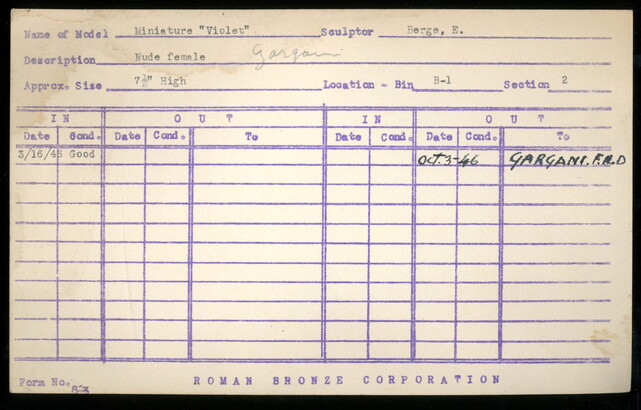 Name of Model Miniature "Violet" Sculptor Berge, E.
Description Nude female Gargani
Approx. Size 7½" High Location - Bin B-1 Section 2
IN OUT IN OUT
Date Cond. Date Cond. To Date Cond. Date Cond. To
3/16/45 Good OCT. 3-46 GARGANI. F.R.D
Form No. ROMAN BRONZE CORPORATION